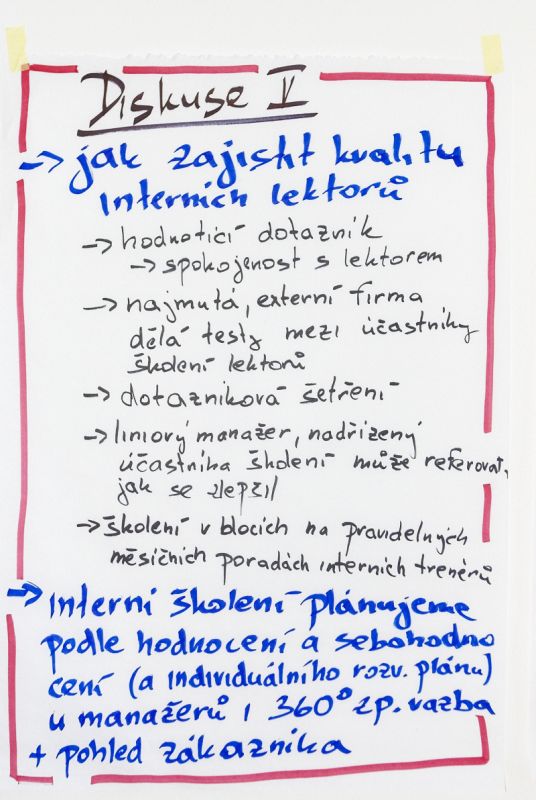 Diskuse V
→ jak zajistit kvalitu
interních lektorů
→ hodnotící dotazník
→ spokojenost s lektorem
→ najmutá, externí firma
dělá testy mezi účastníky
školení lektorů
→ dotazníková šetření
→ liniový manažer, nadřízený
účastníka školení může referovat,
jak se zlepšil
→ školení v blocích na pravidelných
měsíčních poradách interních trenérů
→ interní školení plánujeme
podle hodnocení a sebohodno
cení (a individuálního rozv. plánu)
u manažerů i 360° zp. vazba
+ pohled zákazníka